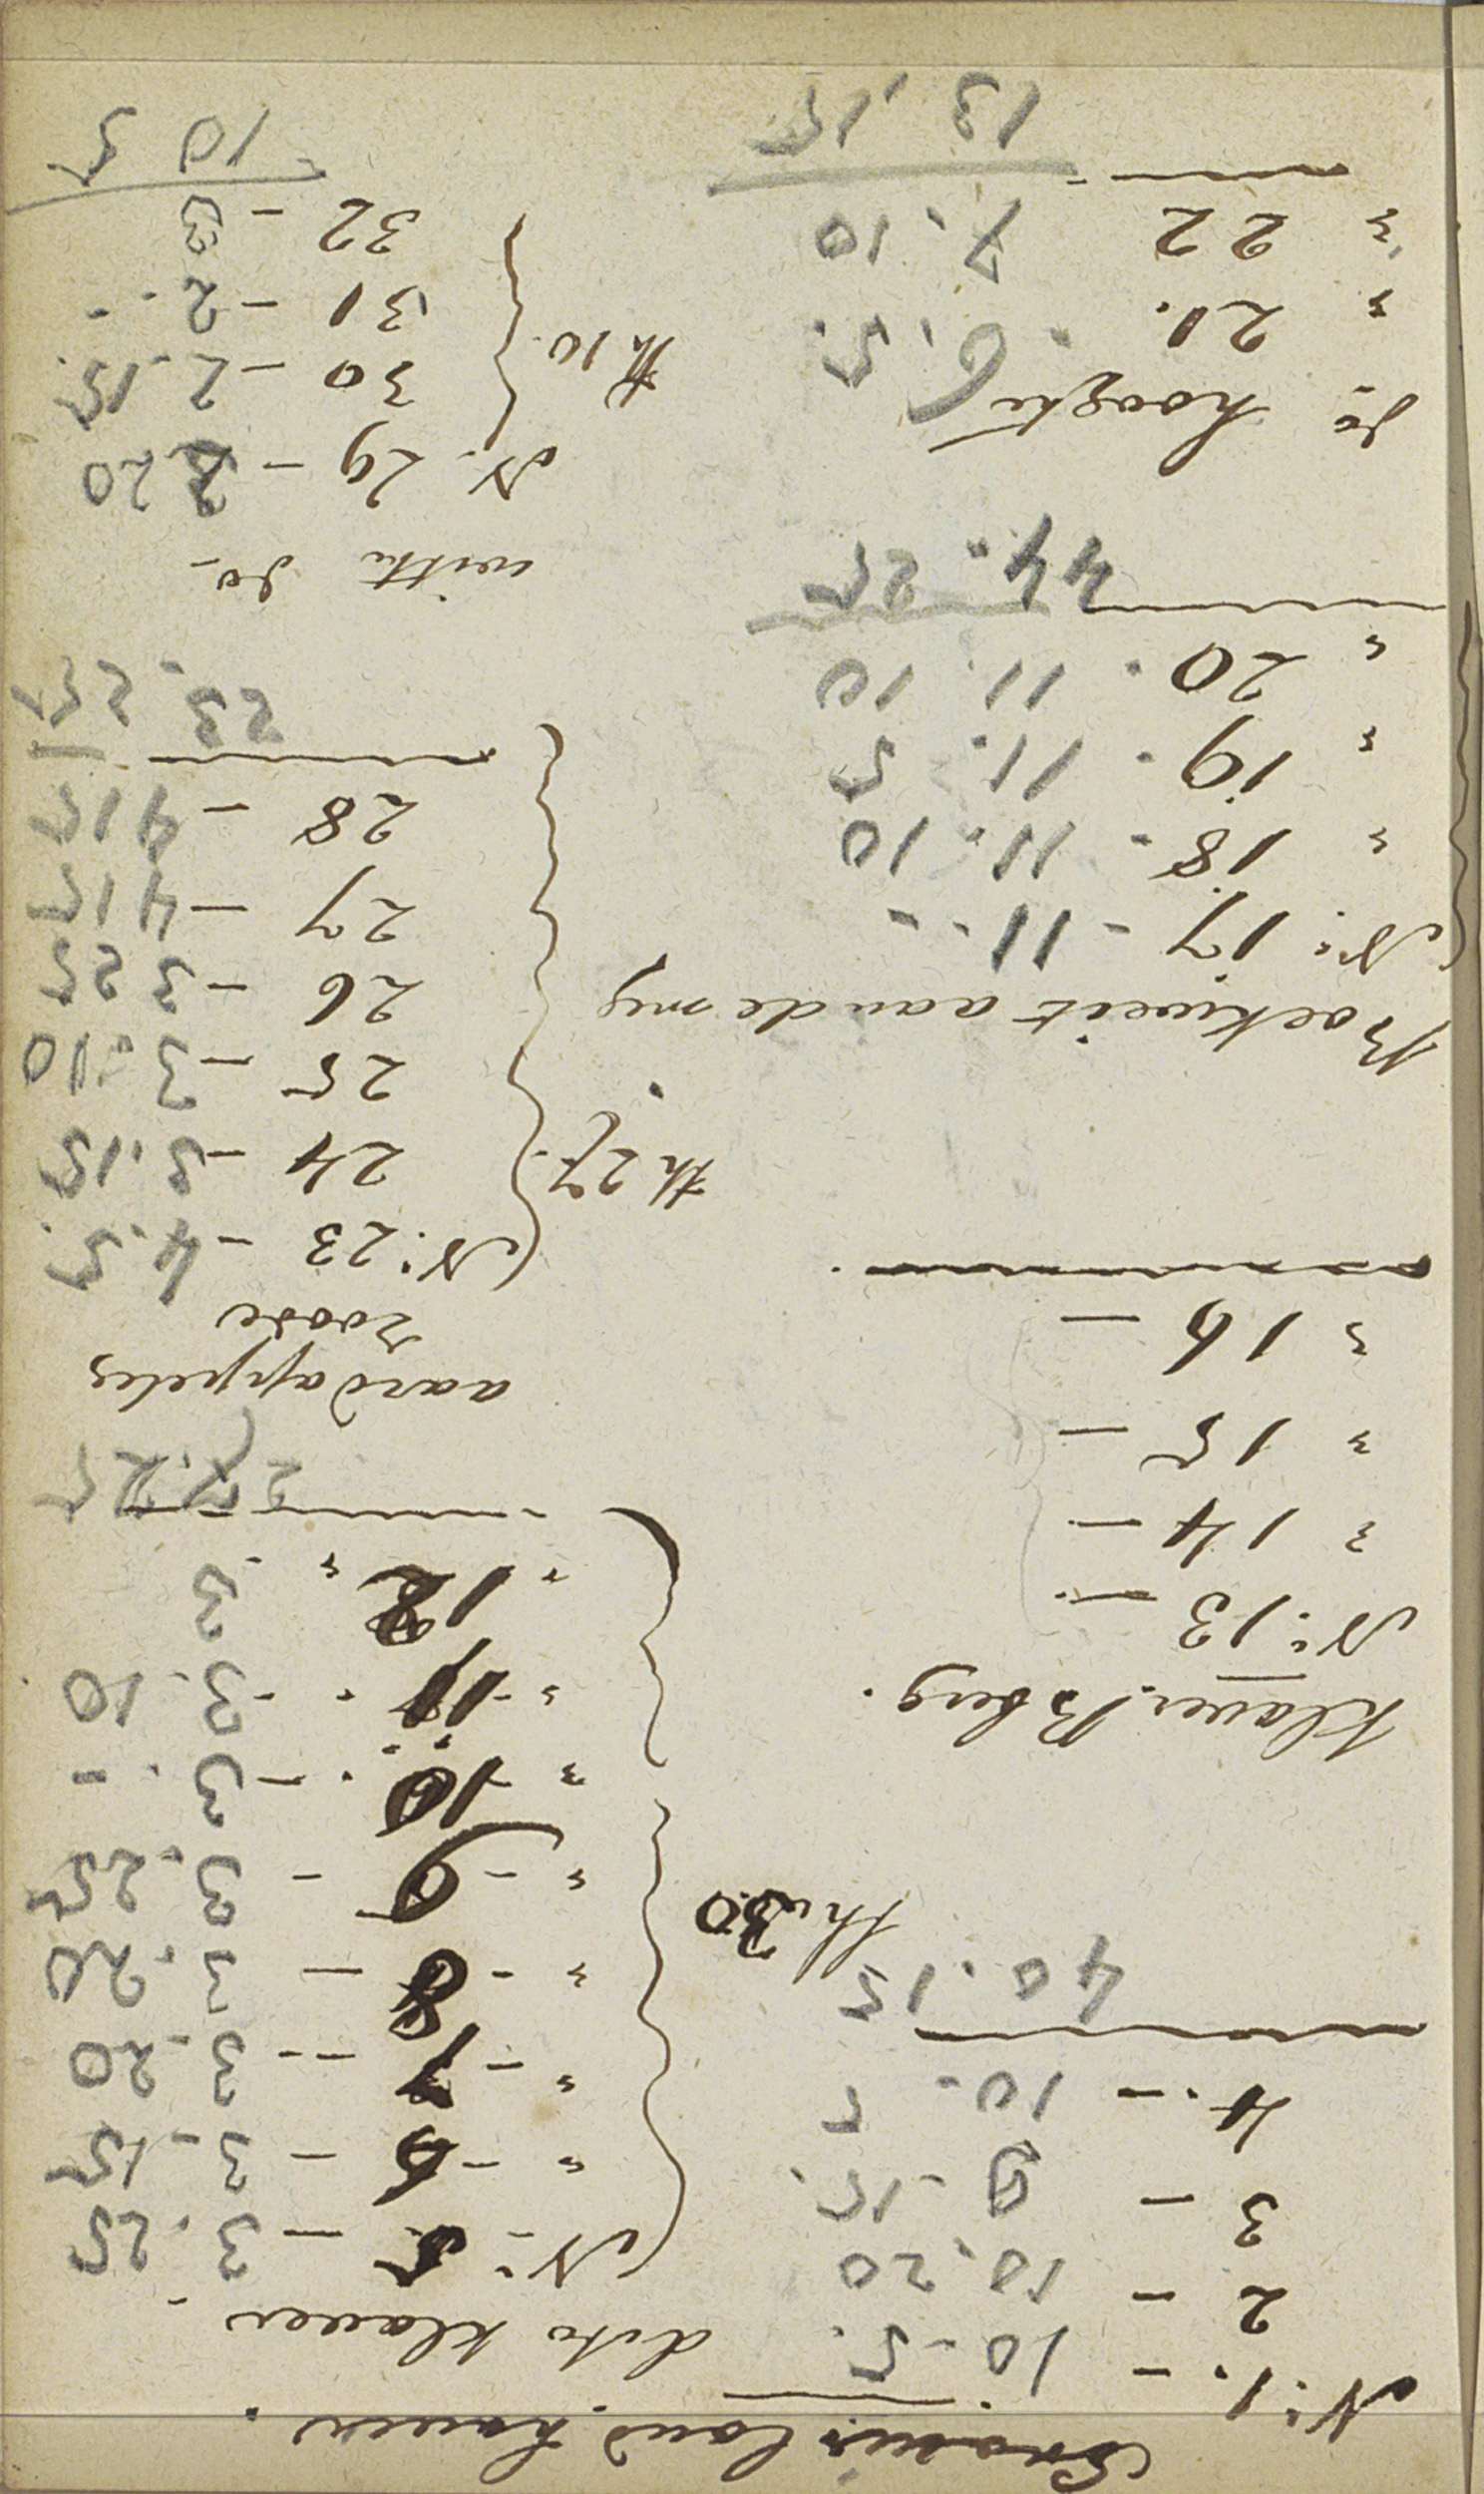 land haver.
N: 1. - 10-5.
2 - 10.20
3 - 9-15.
4. - 10. 5
40.15
Klaver Bberg.
N: 13 -
" 14 -
" 15 -
" 16 -
Boekweit aan de weg
N: 17 - 11. -
" 18. 11. 10
" 19. 11. 5
" 20. 11. 10
44. 25
do hoogte
" 21. 6. 5.
" 22 7. 10
13. 15
dito klaver
N: - 5 - 3.25
" - 6 - 3-15
" - 7 - 3-20
" - 8 - 3.20
" - 9 - 3.25
" - 10 - 3. -
" - 11 - 3.10
" 12 " 3
th 30
27.25
aardappeles
roode
N: 23 - 4.5.
24 - 3.15
th 27.
25 - 3-10
26 - 3 25
27 - 4 15
28 - 4 15
23. 25
witte do
N. 29 - 2 20
30 - 2-15.
th 10.
31 - 2. -
32 - 3
10 5